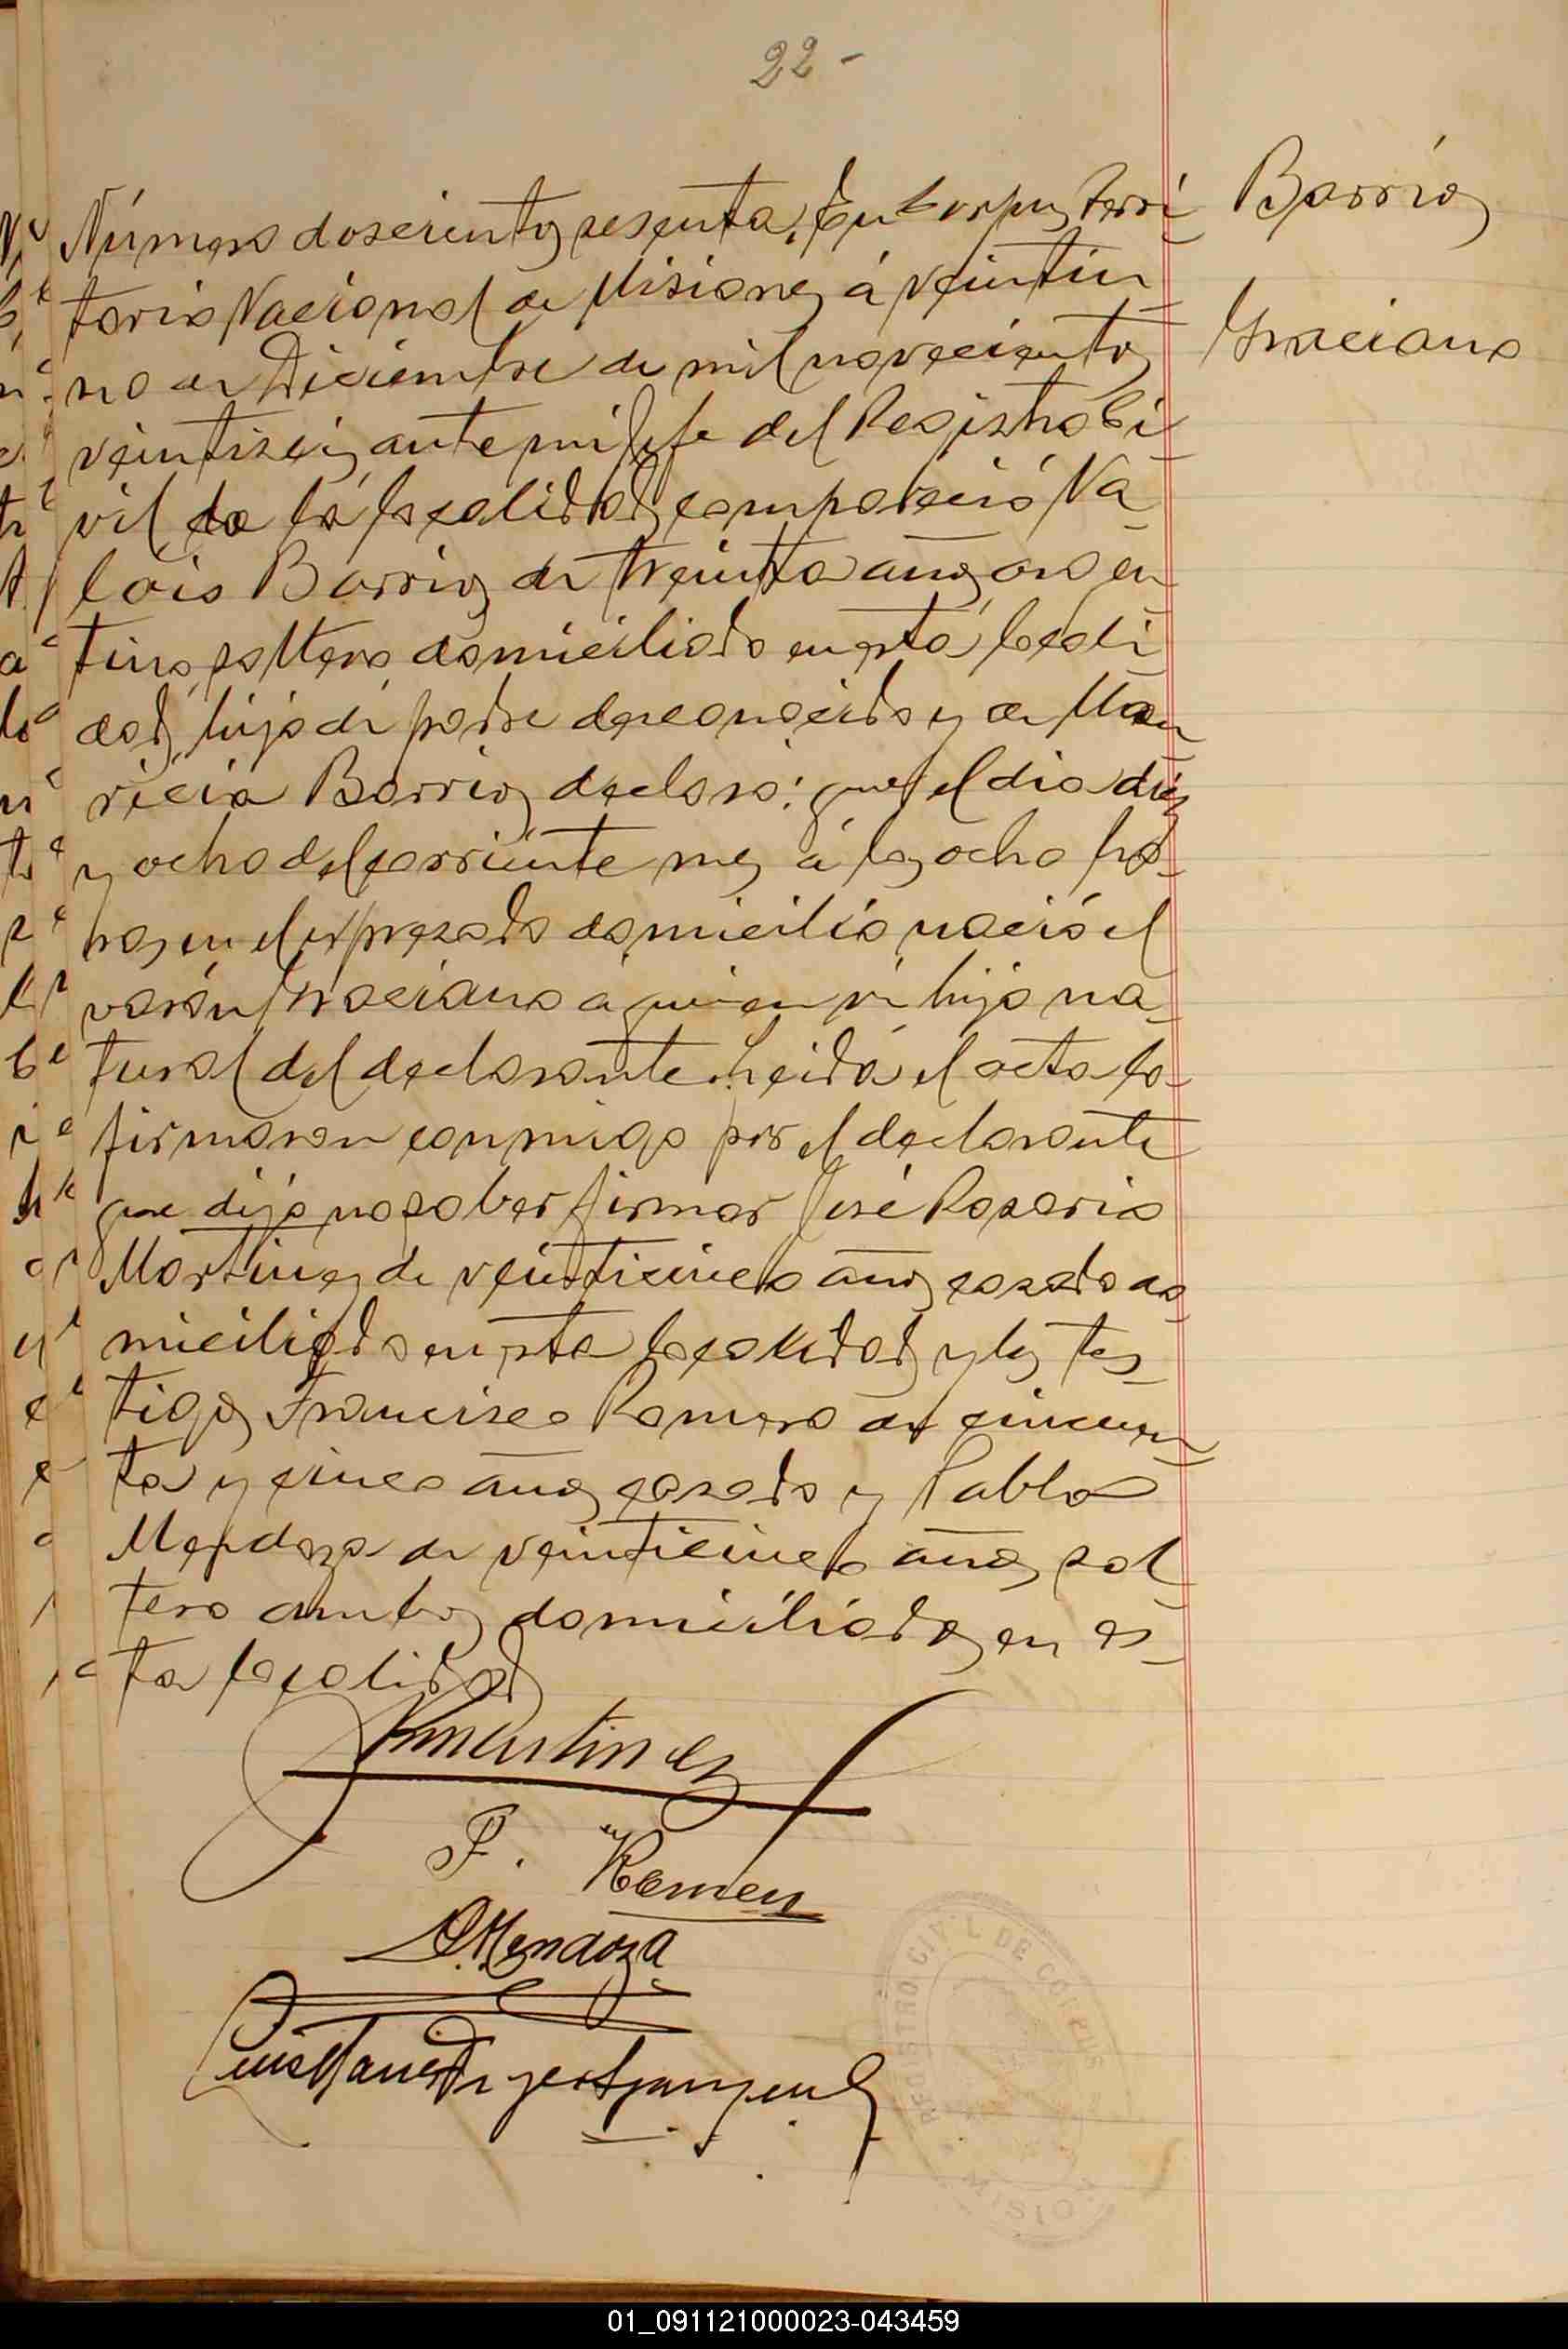 22 -
Barrios
Graciano
Número doscientos sesenta, En Corpus Terri
torio Nacional de Misiones á veintiu
no de Diciembre de mil novecientos
veintiseis, ante mi Jefe del Registro Ci
vil de la localidad, compareció Na
lois Barrios de treinta años argen
tino, soltero, domiciliado en esta locali
dad, hijo de padre desconocido y de Mau
ricia Barrios declaró: que el dia diez
y ocho del corriente mes á las ocho ho
ras, en el expresado domicilio nació el
varón Graciano a quien vi hijo na
tural del declarante. Leida el acta la
firmaron conmigo por el declarante
que dijo no saber firmar José Rosario
Martinez de veinticinco años, casado do
miciliado en esta localidad y los tes
tigos Francisco Romero de cincuen
ta y cinco años, casado y Pablo
Mendoza de veinticinco años, sol
tero ambos domiciliados en es
ta localidad
Martinez
F. Romero
P. Mendoza
REGISTRO CIVIL DE CORPUS
MISIO
01_091121000023-043459